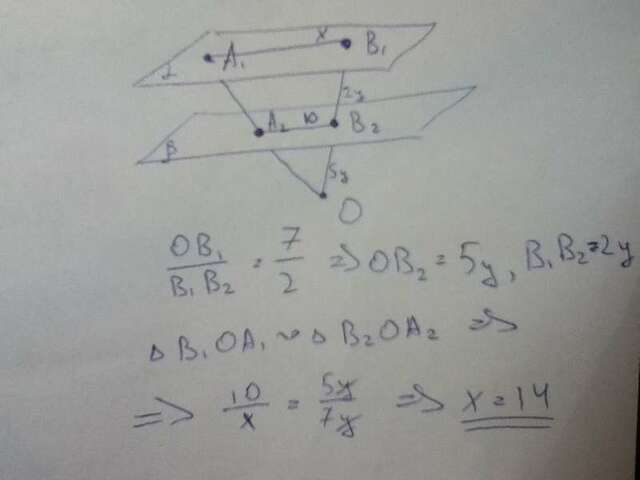 A₁ x B₁
α
2y
A₂ 10 B₂
β
5y
O
OB₁/B₁B₂ = 7/2 => OB₂ = 5y, B₁B₂ = 2y
△ B₁OA₁ ~ △ B₂OA₂ =>
=> 10/x = 5y/7y => x = 14